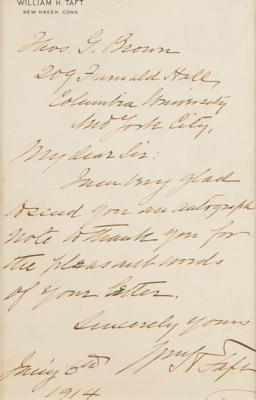 WILLIAM H. TAFT
NEW HAVEN, CONN.
Thos. G. Brown
209 Furnald Hall,
Columbia University
New York City,
My dear Sir:
I am very glad
to send you an autograph
note to thank you for
the pleasant words
of your letter.
Sincerely yours
Wm H Taft
6th
1914